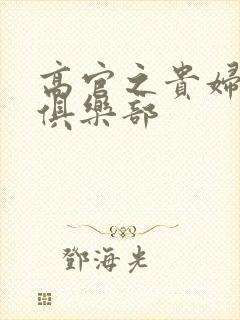 高官之貴婦
俱樂部
鄧海光